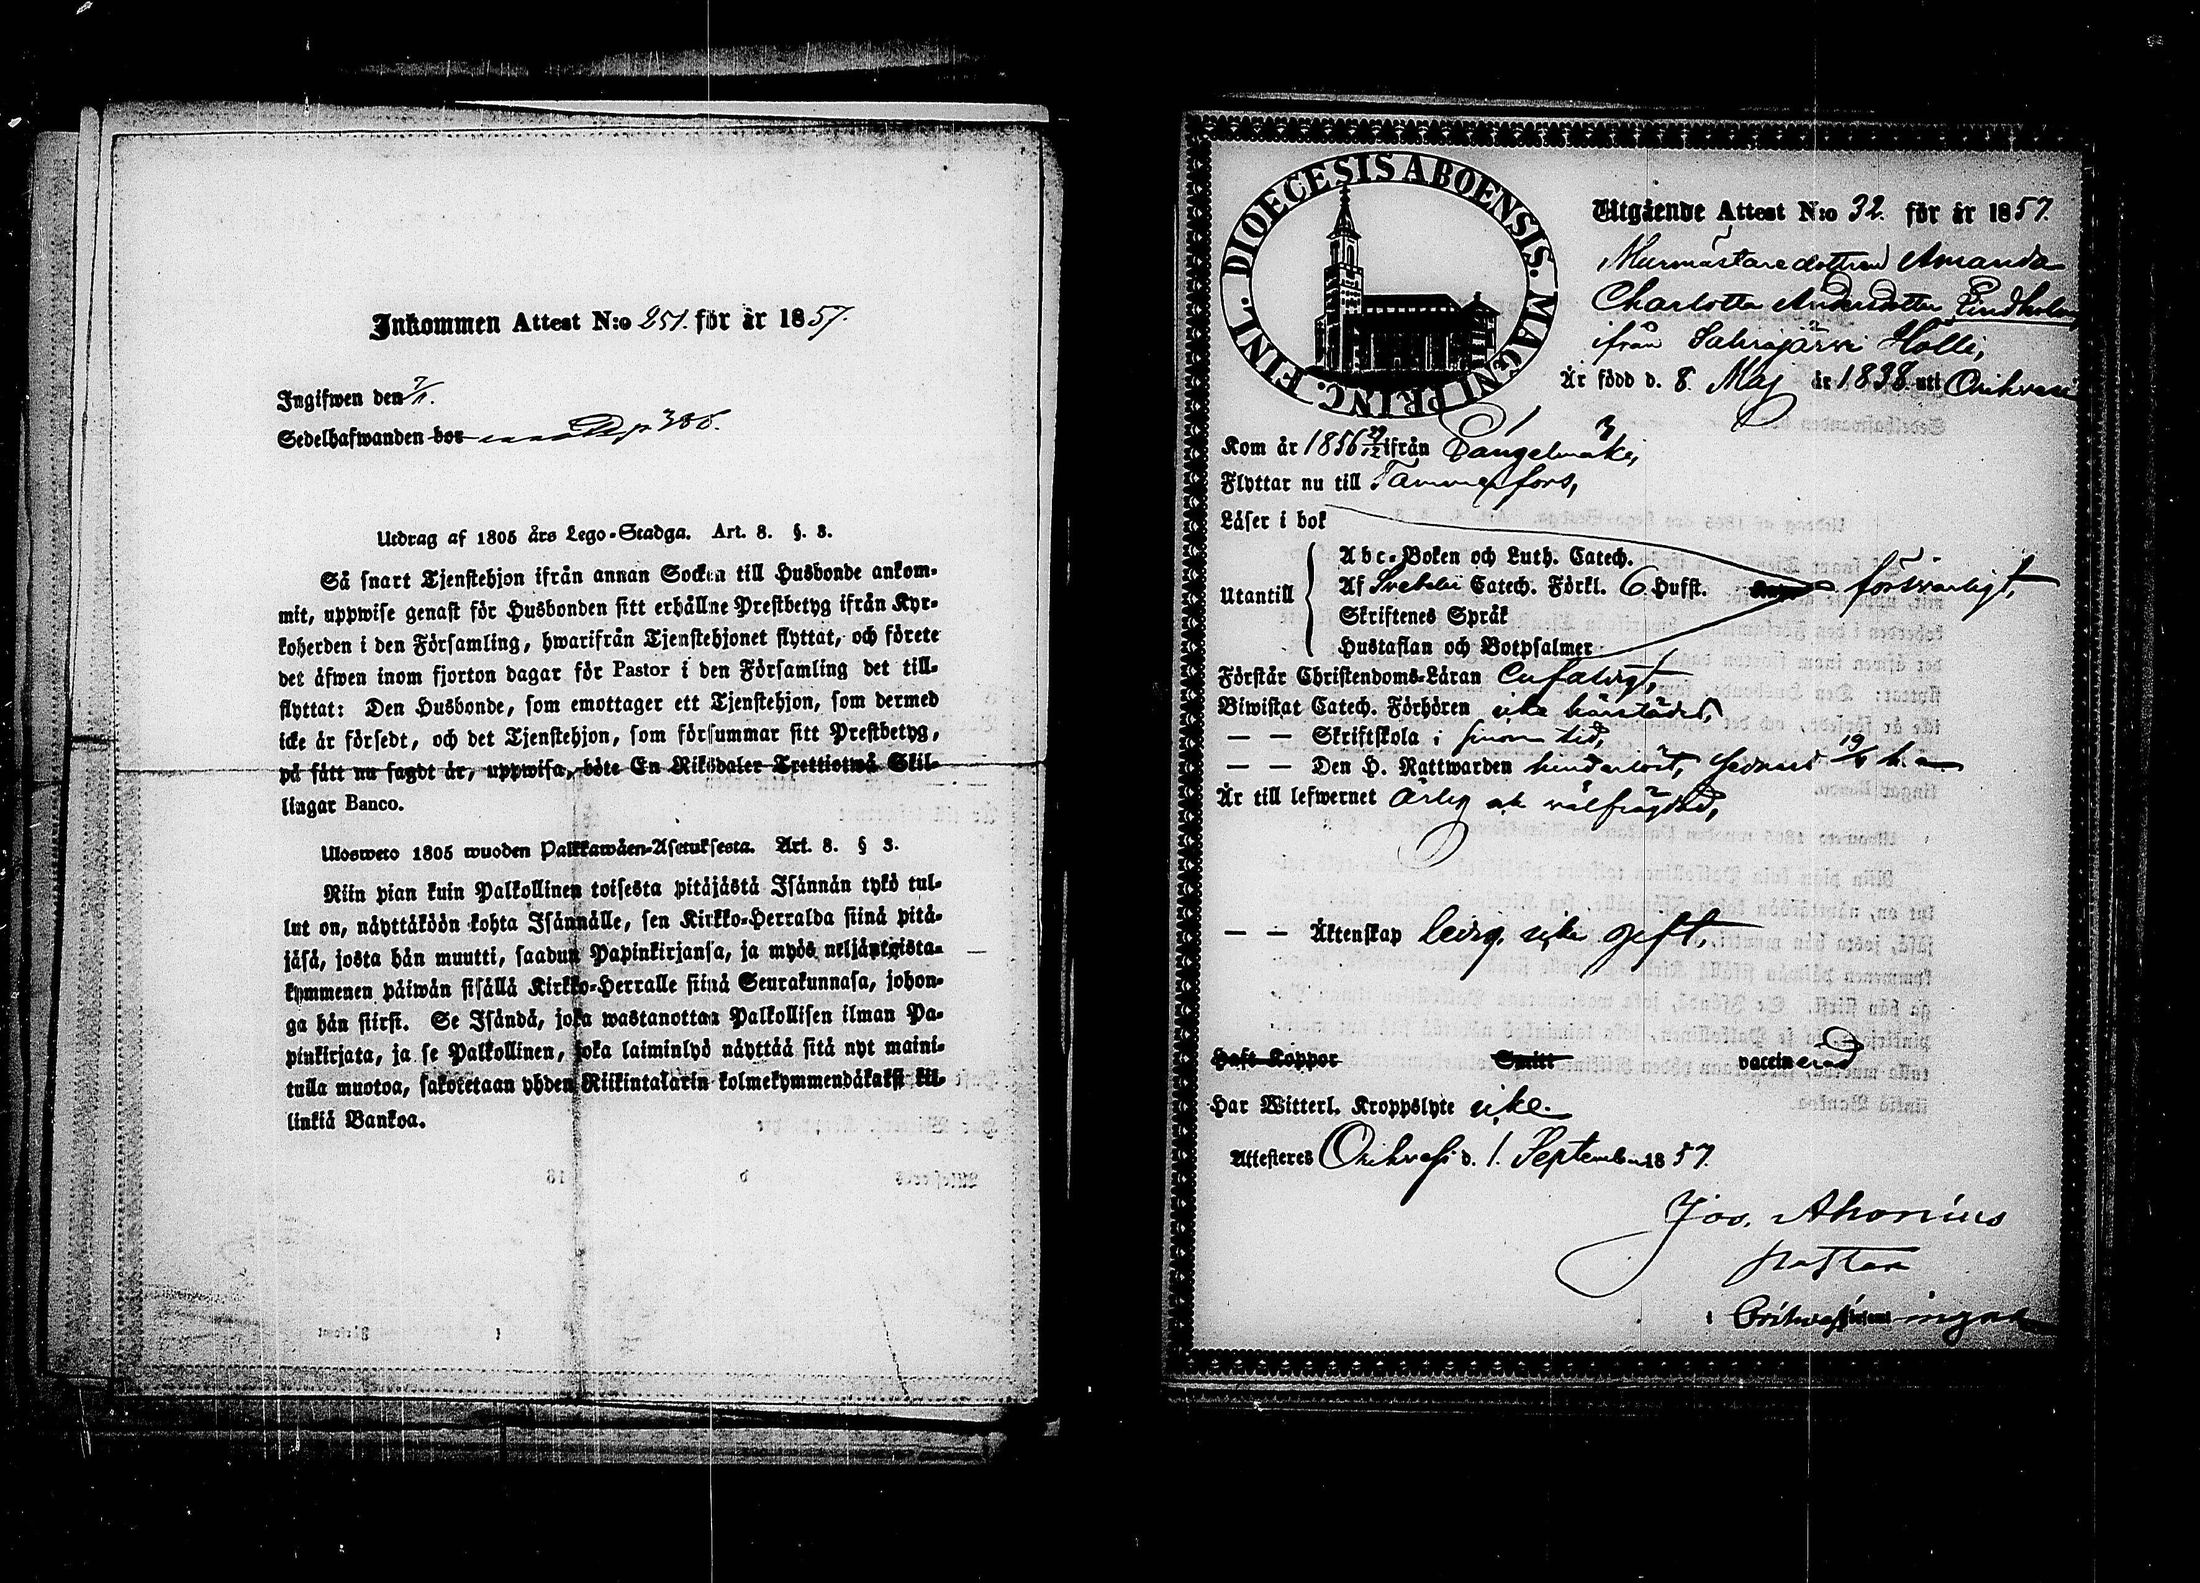 Inkommen Attest N:o 251. för år 1857.
Ingifwen den 7/1.
Sedelhafwanden bor p 308.
Utdrag af 1805 års Lego-Stadga. Art. 8. §. 3.
Så snart Tjenstehjon ifrån annan Socken till Husbonde ankom-
mit, uppwise genast för Husbonden sitt erhållne Prestbetyg ifrån Kyr-
koherden i den Församling, hwarifrån Tjenstehjonet flyttat, och förete
det äfwen inom fjorton dagar för Pastor i den Församling det till-
flyttat: Den Husbonde, som emottager ett Tjenstehjon, som dermed
icke är försedt, och det Tjenstehjon, som försummar sitt Prestbetyg,
på sätt nu sagdt är, uppwisa, böte En Riksdaler Trettiotwå Skil-
lingar Banco.
Ulosweto 1805 wuoden Palkkawäen-Asetuksesta. Art. 8. § 3.
Niin pian kuin Palkollinen toisesta pitäjästä Isännän tykö tul-
lut on, näyttäköön kohta Isännälle, sen Kirkko-Herralda siinä pitä-
jäsä, josta hän muutti, saadun Papinkirjansa, ja myös neljäntoista-
kymmenen päiwän sisällä Kirkko-Herralle siinä Seurakunnasa, johon-
ga hän siirsi. Se Isändä, joka wastanottaa Palkollisen ilman Pa-
pinkirjata, ja se Palkollinen, joka laiminlyö näyttää sitä nyt maini-
tulla muotoa, sakotetaan yhden Riikintalarin kolmekymmendäkaksi kil-
linkiä Bankoa.
DIOECESIS ABOENSIS. MAGNI PRINC. FINL.
Utgående Attest N:o 32. för år 1857.
Murmästaredottren Amanda
Charlotta Andersdotter Lindholm
ifrån Sahrajärvi Holli,
Är född d. 8 Maj år 1838 uti Orihvesi
Kom år 1856 ifrån Längelmäki,
Flyttar nu till Tammerfors,
Läser i bok
Utantill
Abc-Boken och Luth. Catech.
Af Svebelii Catech. Förkl. 6 Hufst. försvarligt,
Skriftenes Språk
Hustaflan och Botpsalmer
Förstår Christendoms-Läran enfaldigt,
Biwistat Catech. Förhören icke härstädes,
— — Skriftskola i sinom tid,
— — Den H. Nattwarden hinderlöst, senast 19/ h. a.
Är till lefwernet ärlig och välfrägdad,
— — Äktenskap ledig, icke gift,
Haft Koppor Smitt vaccinerad
Har Witterl. Kroppslyte icke.
Attesteres Orihvesi d. 1 September 1857.
Jos. Ahonius
Pastor
i Orihvesi